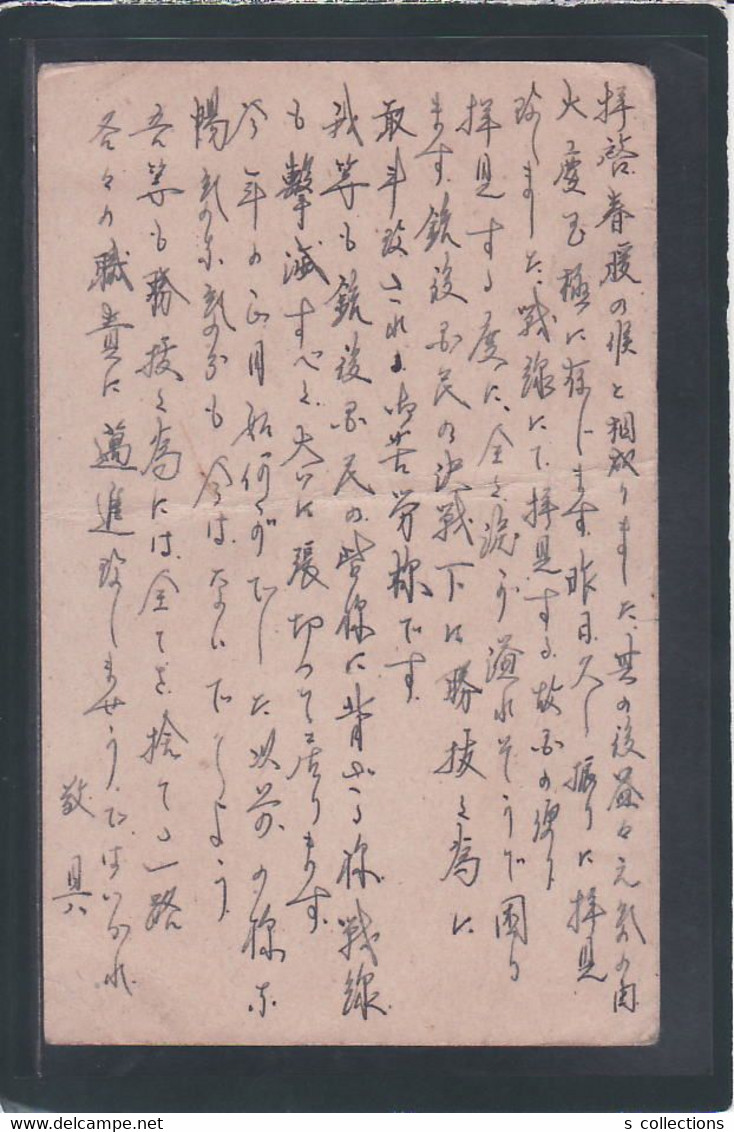 拝啓 春暖の候と相成りました、其の後益々元気の由
大慶至極に存じます。昨日久し振りに拝見
致しました、戦線にて拝見する故国の便り
拝見する度に、全く涙が溢れそうで困り
ます。銃後国民の決戦下に勝抜く為に
敢斗致される御苦労様です。
我等も銃後国民の皆様に背かぬ様戦線
も撃滅すべく大いに張切って居ります。
今年の正月如何でした以前の様な
暢気な気分も今はないでしょう
吾等も勝抜く為には全てを捨てゝ一路
各々の職責に邁進致しませう、ではいづれ
敬具
s collections